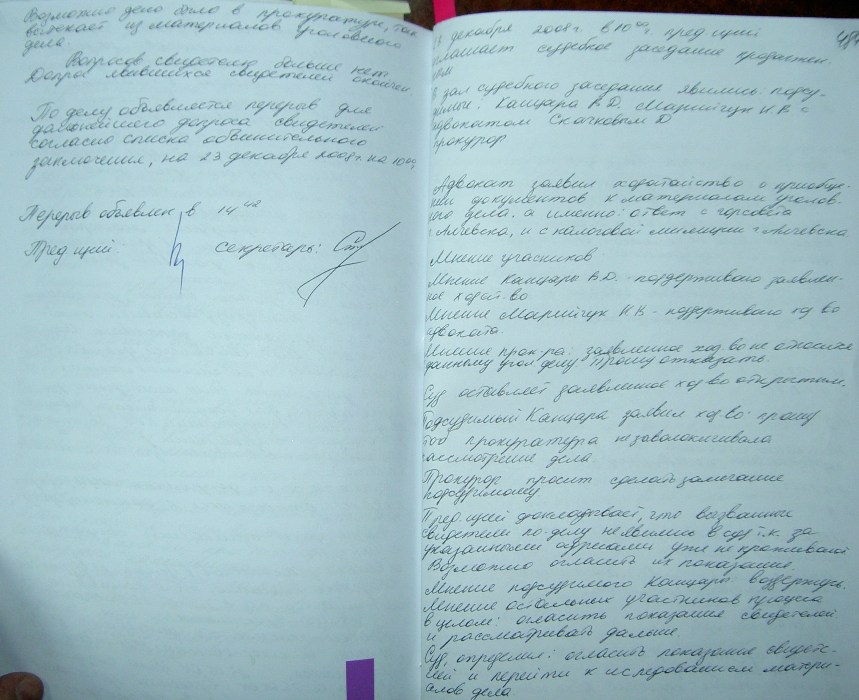 Возможно дело было в прокуратуре, так
вытекает из материалов уголовного
дела.
Вопросов свидетелю больше нет
Допрос явившихся свидетелей окончен
По делу объявляется перерыв для
дальнейшего допроса свидетелей
согласно списка обвинительного
заключения, на 23 декабря 2008г. на 10 00,
Перерыв объявлен в 14
Пред-щий секретарь:
декабря 2008г. в 10 00, пред-щий
судебное заседание продолжен
ным
В зал судебного заседания явились: подсу-
димые: Канцара В.Д. Марийчук Н.В с
адвокатом Скачковым Ю
прокурор
Адвокат заявил ходатайство о приобще-
нии документов к материалам уголов-
ного дела, а именно: ответ с горсовета
г. Алчевска, и с налоговой милиции г. Алчевска
Мнение участников
Мнение Канцары В.Д. - поддерживаю заявлен-
ное ходат-во
Мнение Марийчук Н.В - поддерживаю ход-во
адвоката.
Мнение прок-ра: заявленное ход-во не относится
данному угол. делу. Прошу отказать.
Суд оставляет заявленное ход-во открытым.
Подсудимый Канцара заявил ход-во: прошу
чтоб прокуратура не заволокичивала
рассмотрение дела.
Прокурор просит сделать замечание
подсудимому
Пред-щий докладывает, что вызванные
свидетели по делу не явились в суд т.к. за
указанными адресами уже не проживают
Возможно огласить их показания.
Мнение подсудимого Канцары: воздержусь.
Мнение остальных участников процеса
в целом: огласить показания свидетелей
и рассматривать дальше.
Суд, определил: огласить показания свидете-
лей и перейти к иследованием матери-
алов дела